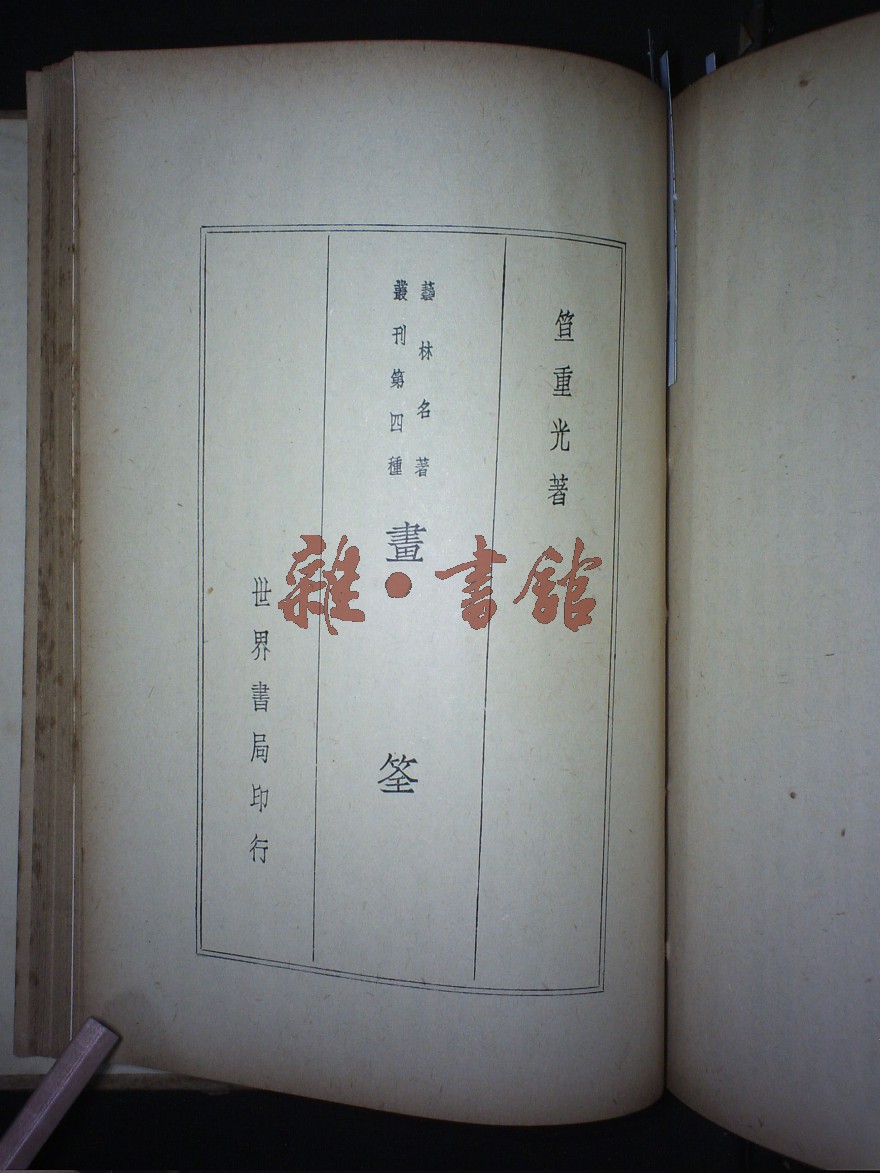 笪重光著
藝林名著
叢刊第四種
畫筌
世界書局印行
雜·書館